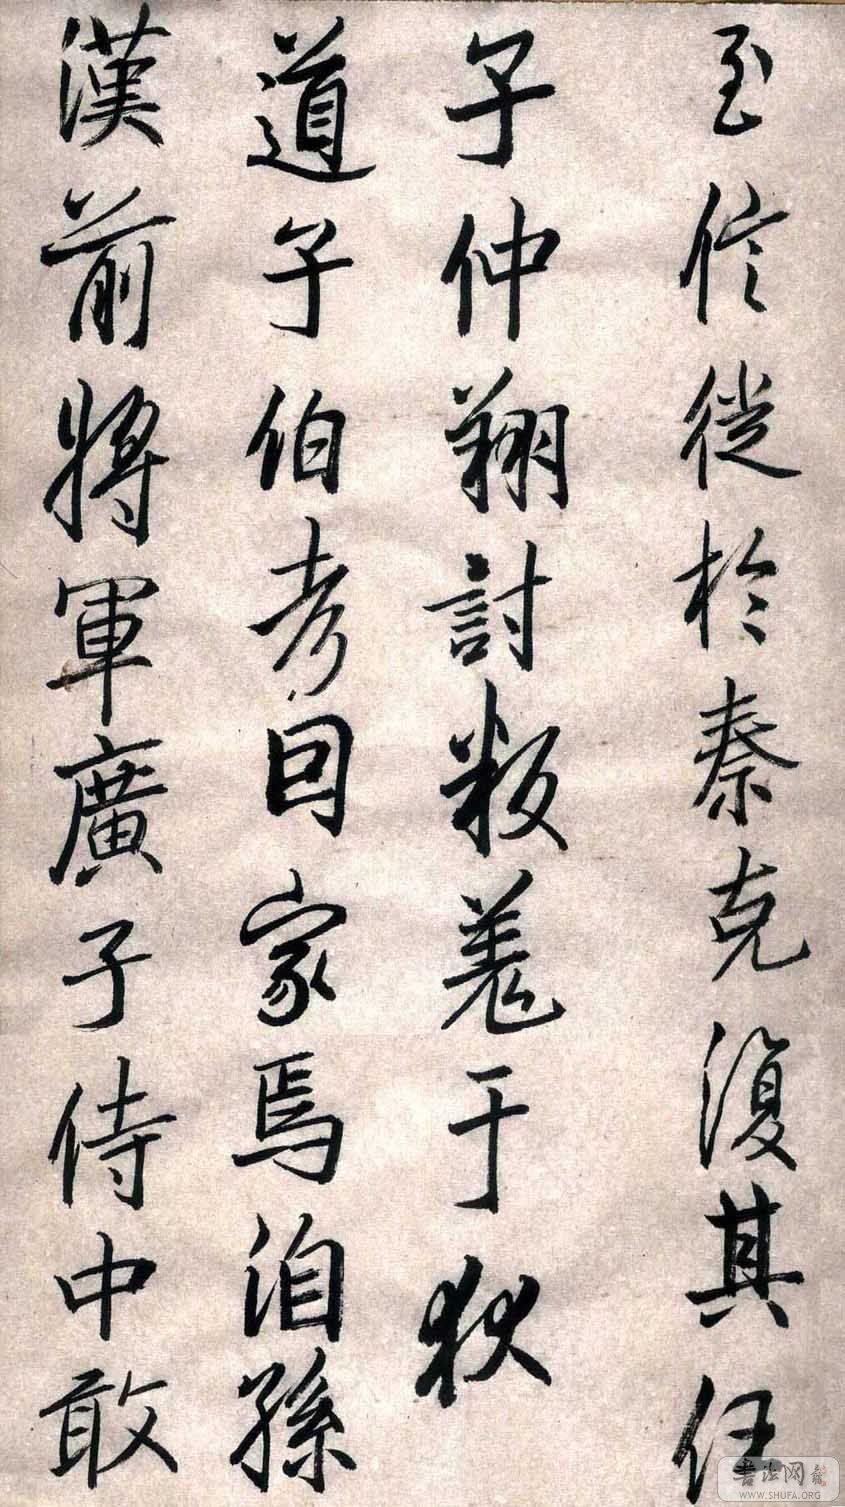 至信徙於秦克復其任
子仲翔討叛羌于狄
道子伯考因家焉洎孫
漢前將軍廣子侍中敢
書法网
WWW.SHUFA.ORG